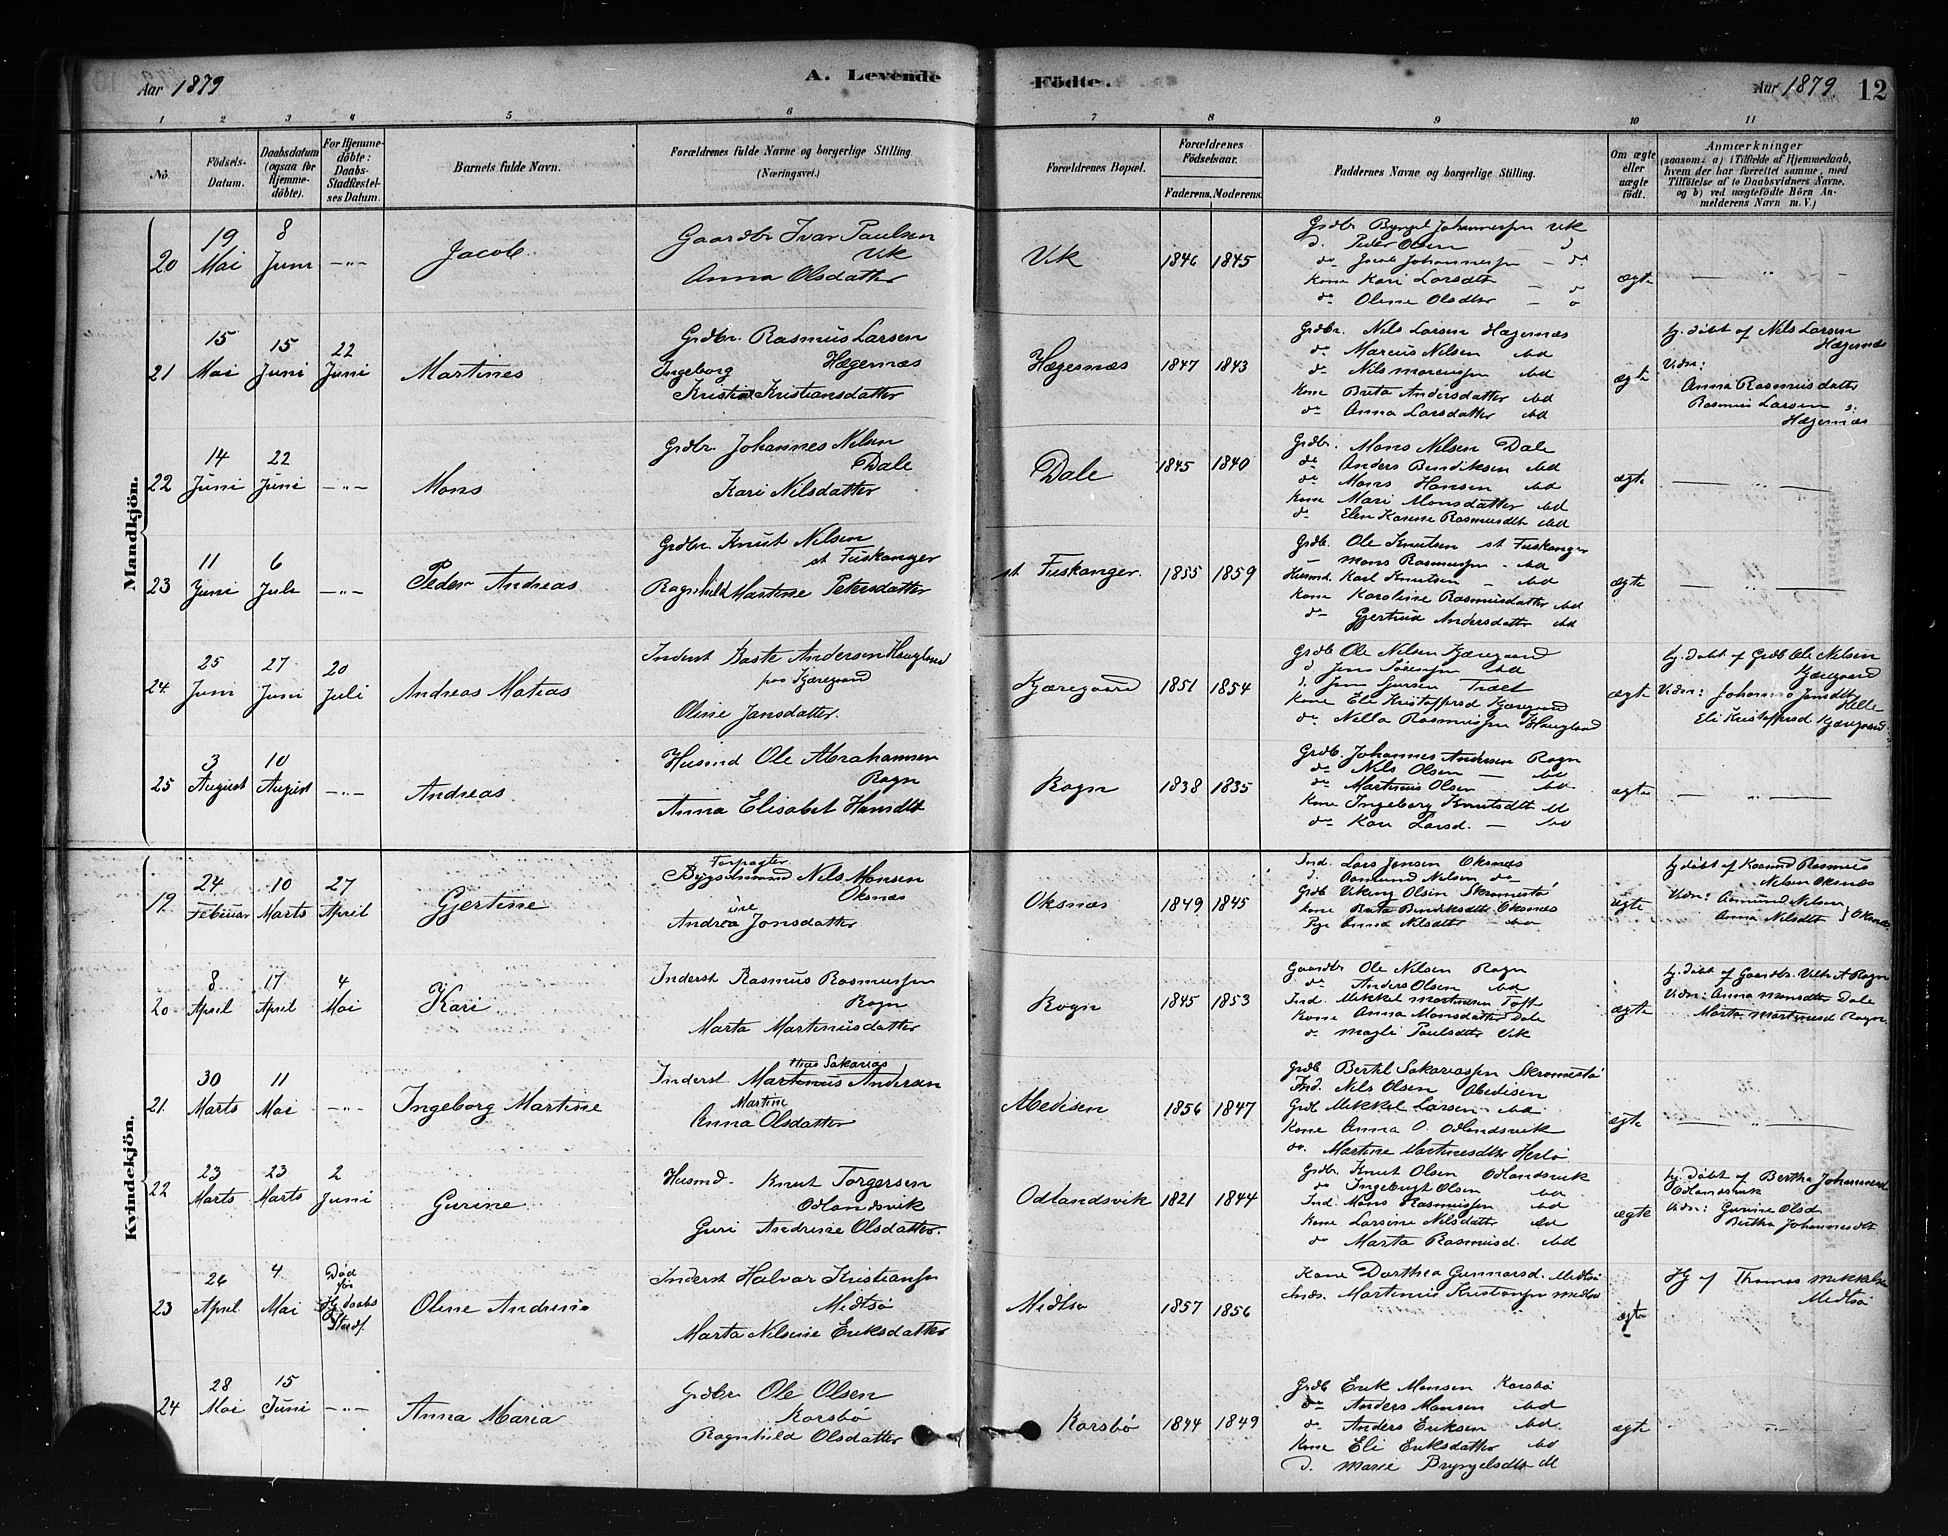 Aar 1879
A. Levende
Födte.
Aar 1879.
12
1 2 3 4 5 6 7 8 9 10 11
No.
Födsels-
Datum.
Daabsdatum
(ogsaa for
Hjemme-
döbte).
For Hjemme-
döbte:
Daabs-
Stadfæstel-
ses Datum.
Barnets fulde Navn.
Forældrenes fulde Navne og borgerlige Stilling
(Næringsvei.)
Forældrenes Bopæl.
Forældrenes
Födselsaar.
Faderens.
Moderens.
Faddernes Navne og borgerlige Stilling.
Om ægte
eller
uægte
födt.
Anmærkninger
(saasom: a) i Tilfælde af Hjemmedaab,
hvem der har forrettet samme, med
Tilföielse af to Daabsvidners Navne,
og b) ved uægtefödte Börn An-
melderens Navn m. V.)
Mandkjön.
20
19
Mai
8
Juni
—"—
Jacob
Gaardbr Ivar Paulsen
Vik
Anna Olsdatter
Vik
1846
1845
Grdbr Johannessen Vik
d. Peder Olsen — d
do Jacob Johannessen — do
Kone Kari Larsdtr —
do Oline Olsdtr —
ægte
— " —
21
15
Mai
15
Juni
22
Juni
Martines
Grdbr. Rasmus Larsen
Hægernæs
Ingeborg
Kristiansdatter
Hægernæs
1847
1843
Grdbr. Nils Larsen Hægernæs
do Marcus Nilsen ibd
do Nils Marcussen ibd
Kone Brita Andersdatter ibd
do Anna Larsdatter ibd
ægte
hj. döbt af Nils Larsen
Hægernæs
Vidn:
Anna Rasmusdatter
Rasmus Larsen
Hægernæs
22
14
Juni
22
Juni
—"—
Mons
Grdbr Johannes Nilsen
Dale
Kari Nilsdatter
Dale
1845
1840
Grdbr. Mons Nilsen Dale
do Anders Bendiksen ibd
do Mons Hansen ibd
Kone Mari Monsdatter ibd
do Elen Karine Rasmusdtr ibd
ægte
— " —
23
11
Juni
6
Juli
—"—
Peder Andreas
Grdbr. Knut Nilsen
st Fuskanger
Ragnhild Martine Petersdatter
st Fuskanger.
1855
1859
Grdbr. Ole Knutsen st Fuskanger
Mons Rasmussen - ibd
Husmd. Karl Knutsen — ibd
Kone Karoline Rasmusdatter ibd
do Gjertrud Andersdatter ibd
ægte
— " —
24
25
Juni
27
Juni
20
Juli
Andreas Matias
Inderst Baste Andersen Haugland
paa Kjæregaard
Oline Jansdatter.
Kjæregaard
1851
1854
Grdb Ole Nilsen Kjæregaard
d. Jens ibd
d. Jens Træet
Kone Eli Kristoffersd Kjæregaard
do Nilla Rasmussen Haugland
ægte
hj. döbt af Grdb Ole Nilsen
Kjæregaard
Vidn: Johanna Jansdtr
Helle
Eli Kristoffersd Kjæregaard
25
3
August
10
August
—"—
Andreas
Husmd Ole Abrahamsen
Rogn
Anna Elisabet Hansdtr
Rogn
1838
1835
Grdb. Johannes Andersen Rogn
do Nils Olsen — ibd
do Martinus Olsen ibd
Kone Ingeborg Knutsdtr ibd
do Kari Larsd. — ibd
ægte
— " —
Kvindekjön.
19
24
Februar
10
Marts
27
April
Gjertine
Forpagter
Nils Monsen
Oksnæs
Andrea Jonsdatter
Oksnæs
1849
1845
Ind. Lars Jansen Oksnæs
d. Aamund Nilsen do
Grdb Viking Olsen Skromestö
Kone Brita Bendiksdtr Oksnæs
Pige Anna Nilsdtr — ibd
ægte
hj döbt af Rasmus
Nilsen Oksnæs
Vidn: Aamund Nilsen
Anna Nilsdtr } Oksnæs
20
8
April
17
April
4
Mai
Kari
Inderst Rasmus Rasmussen
Rogn
Marta Martinusdatter
Rogn
1845
1853
Gaardbr Ole Nilsen Rogn
do Anders Olsen ibd
Ind. Mikkel Martinusen Toft
Kone Anna Monsdatter Dale
do Magli Paulsdtr Vik
ægte
hj. döbt af Gaardbr. Rogn
Vidn: Anna Monsdtr Dale
Marta Martinusd Rogn.
21.
30
Marts
11
Mai
—"—
Ingeborg Martine
Sakarias
Inderst Martinus Andersen
Martine
Anna Olsdatter
Abedisen
1856
1847
Grdb Bertil Sakariassen Skromestö
Ind. Nils Olsen Abedisen
Grdb Mikkel Larsen ibd
Kone Anna O. Odlandsvik
do. Martine Martinusdtr Herlö
ægte
— " —
22
23
Marts
23
Marts
2
Juni
Gurine
Husmd. Knut Torgersen
Odlandsvik
Guri Andrine Olsdatter.
Odlandsvik
1821
1844
Grdbr. Knut Olsen Odlandsvik
do Ingebrigt Olsen ibd
Ind. Mons Rasmussen ibd
Kone Larsine Nilsdatter ibd
do Marta Rasmusd. ibd
ægte
hj. Döbt af Bertha Johannesd
Odlandsvik
Vidn: Gurine Olsd
Bertha Johannesdtr
23
26
April
4
Mai
Död
för
Hj daabs
Stadf.
Oline Andrine
Inderst Halvor Kristiansen
Midtsö
Marta Nilsine Eriksdatter
Midtsö
1857
1856
Kone Dorthea Gunnarsd. Midtsö
Inds. Martinus Kristiansen Midtsö
ægte
Hj af Thomas Mikkelsen
Midtsö
24
28
Mai
15
Juni
—"—
Anna Maria
Grdbr Ole Olsen
Korsbö
Ragnhild Olsdatter
Korsbö
1844
1849
Grdb Erik Monsen Korsbö
do Anders Monsen ibd
do Anders Eriksen ibd.
Kone Eli Eriksdatter ibd
d. Marie Bryngelsdtr ibd
ægte
— " —